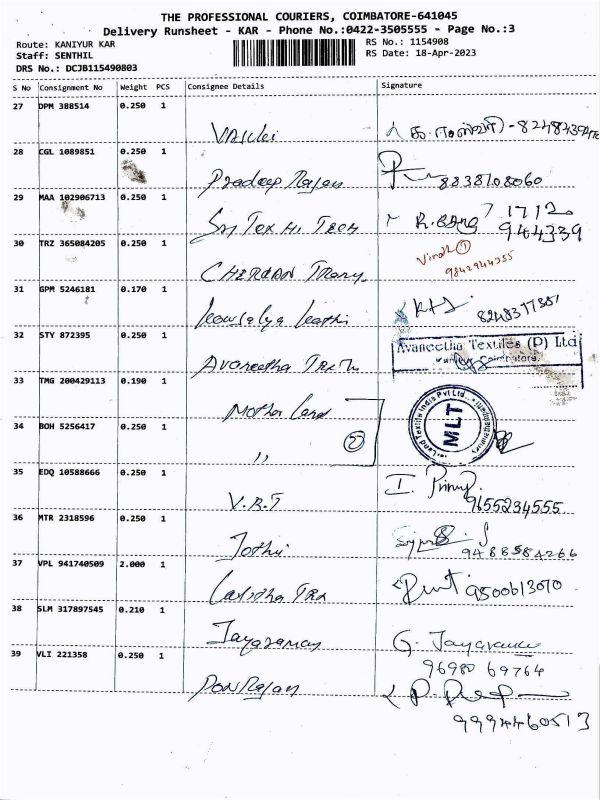 THE PROFESSIONAL COURIERS, COIMBATORE-641045
Delivery Runsheet - KAR - Phone No.:0422-3505555 - Page No.:3
Route: KANIYUR KAR
Staff: SENTHIL
DRS No.: DCJB115490803
RS No.: 1154908
RS Date: 18-Apr-2023
S No Consignment No Weight PCS Consignee Details Signature
27 DPM 388514 0.250 1
28 CGL 1089851 0.250 1
Pradeep Rajan 8838108060
29 MAA 102906713 0.250 1
Sri Tex Hi Tech 1712
944339
30 TRZ 365084205 0.250 1
9842944355
31 GPM 5246181 0.170 1
32 STY 872395 0.250 1
Avaneetha Textiles (P) Ltd
Avaneetha
33 TMG 200429113 0.190 1
Mother Land
MLT
34 BOH 5256417 0.250 1
〃 2
35 EDQ 10588666 0.250 1
V.R.T 9655234555
36 MTR 2318596 0.250 1
Jothi 9488584266
37 VPL 941740509 2.000 1
9500613070
38 SLM 317897545 0.210 1
Jayaraman G. Jayaraman
96980 69764
39 VLI 221358 0.250 1
Pon Rajan
9994460513